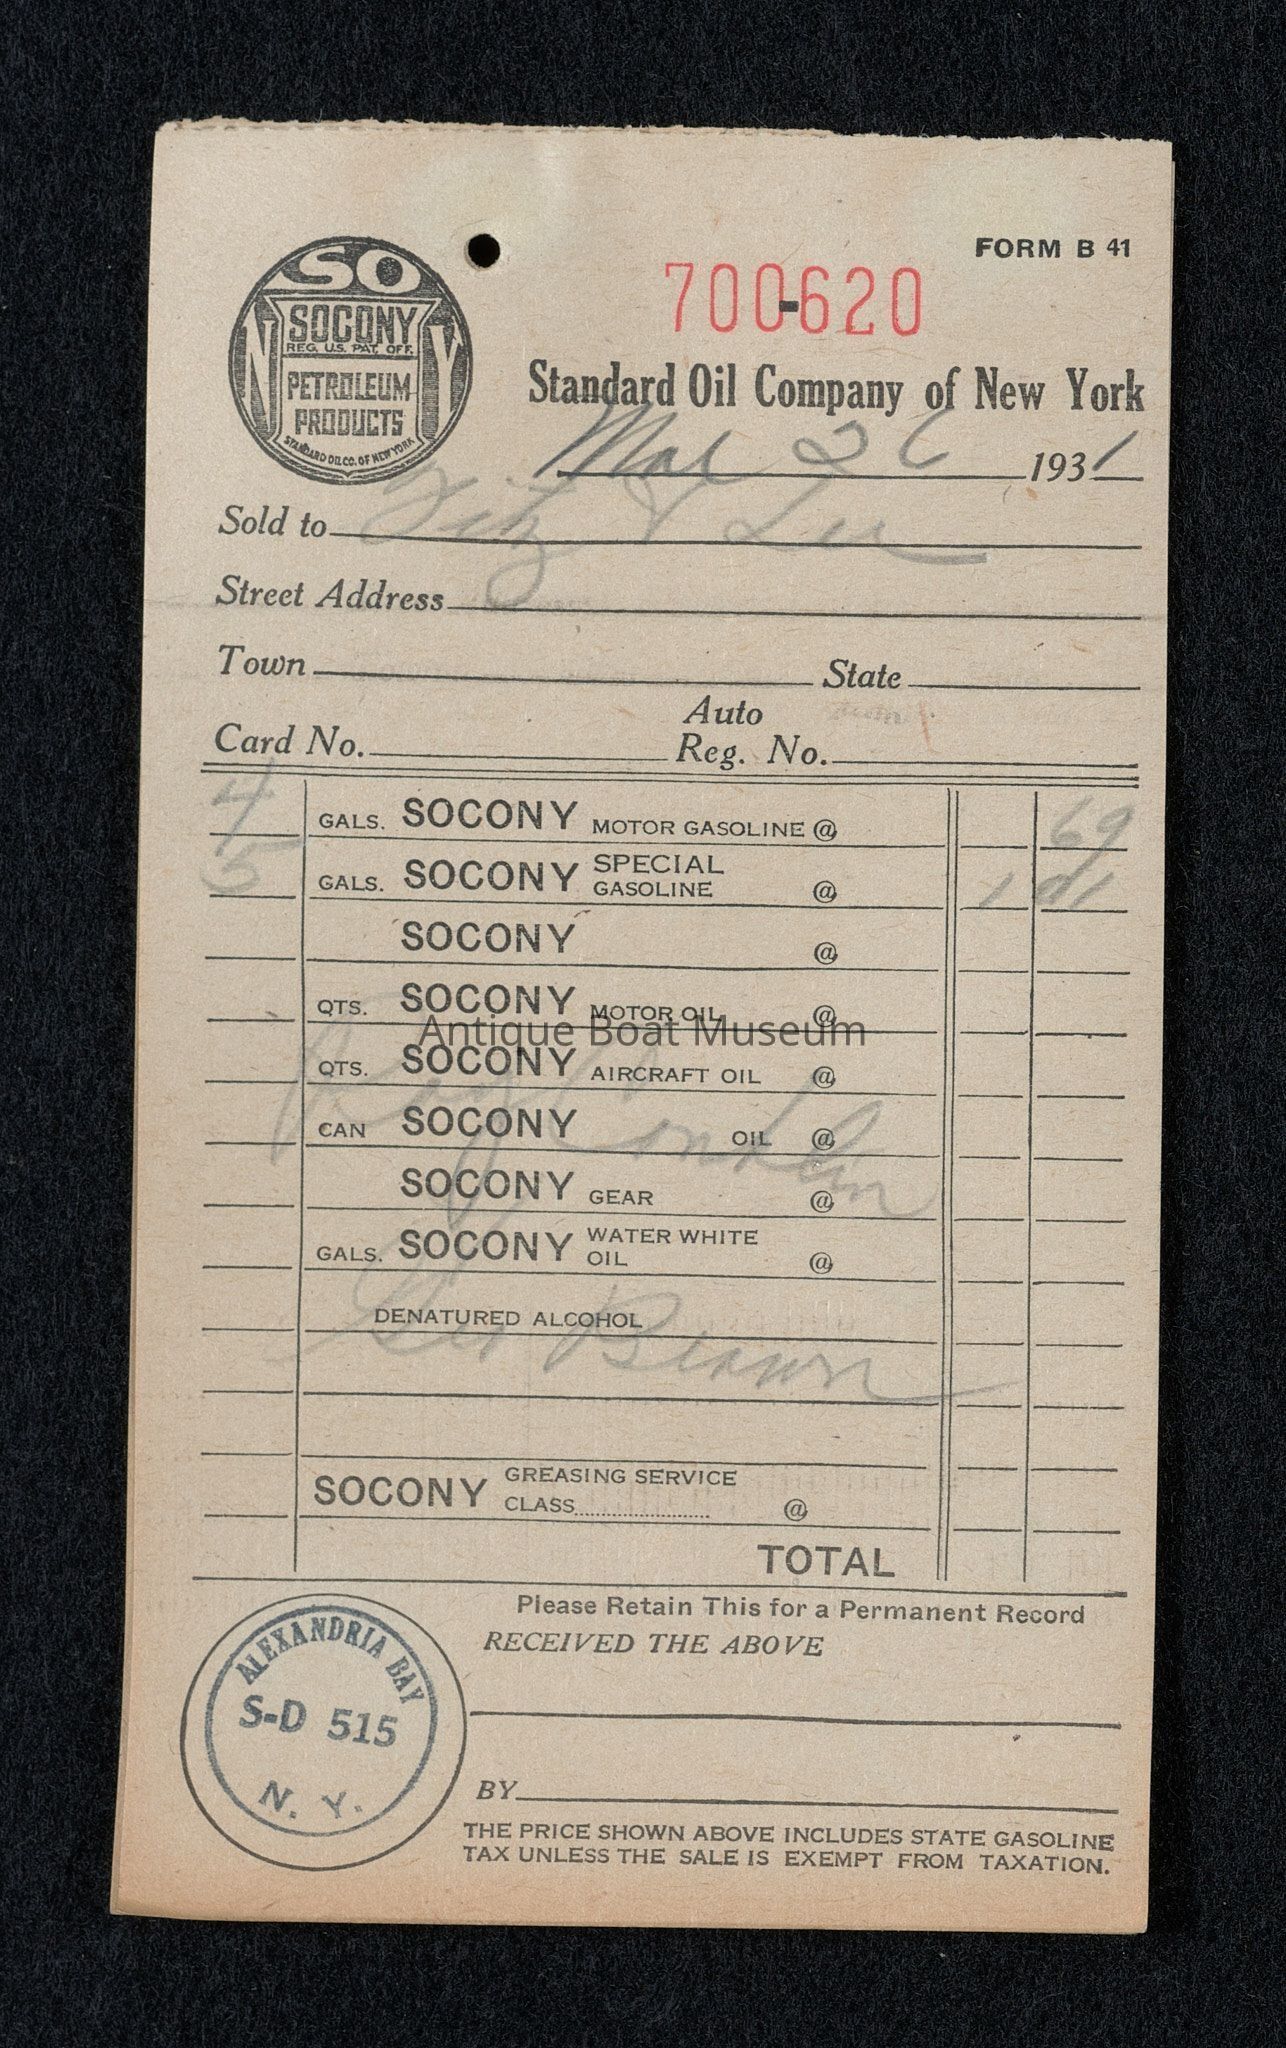 FORM B 41
SO
N Y
SOCONY
REG. U.S. PAT. OFF.
PETROLEUM
PRODUCTS
STANDARD OIL CO. OF NEW YORK
700-620
Standard Oil Company of New York
Mar 26 1931
Sold to Fitz & Lee
Street Address
Town State
Auto
Card No. Reg. No.
4 GALS. SOCONY MOTOR GASOLINE @ 69
5 GALS. SOCONY SPECIAL GASOLINE @ 1 01
SOCONY @
QTS. SOCONY MOTOR OIL @
Antique Boat Museum
QTS. SOCONY AIRCRAFT OIL @
CAN SOCONY OIL @
Conklin
SOCONY GEAR @
GALS. SOCONY WATER WHITE OIL @
DENATURED ALCOHOL
Brown
SOCONY GREASING SERVICE
CLASS @
TOTAL
Please Retain This for a Permanent Record
RECEIVED THE ABOVE
ALEXANDRIA BAY
S-D 515
N. Y.
BY
THE PRICE SHOWN ABOVE INCLUDES STATE GASOLINE
TAX UNLESS THE SALE IS EXEMPT FROM TAXATION.